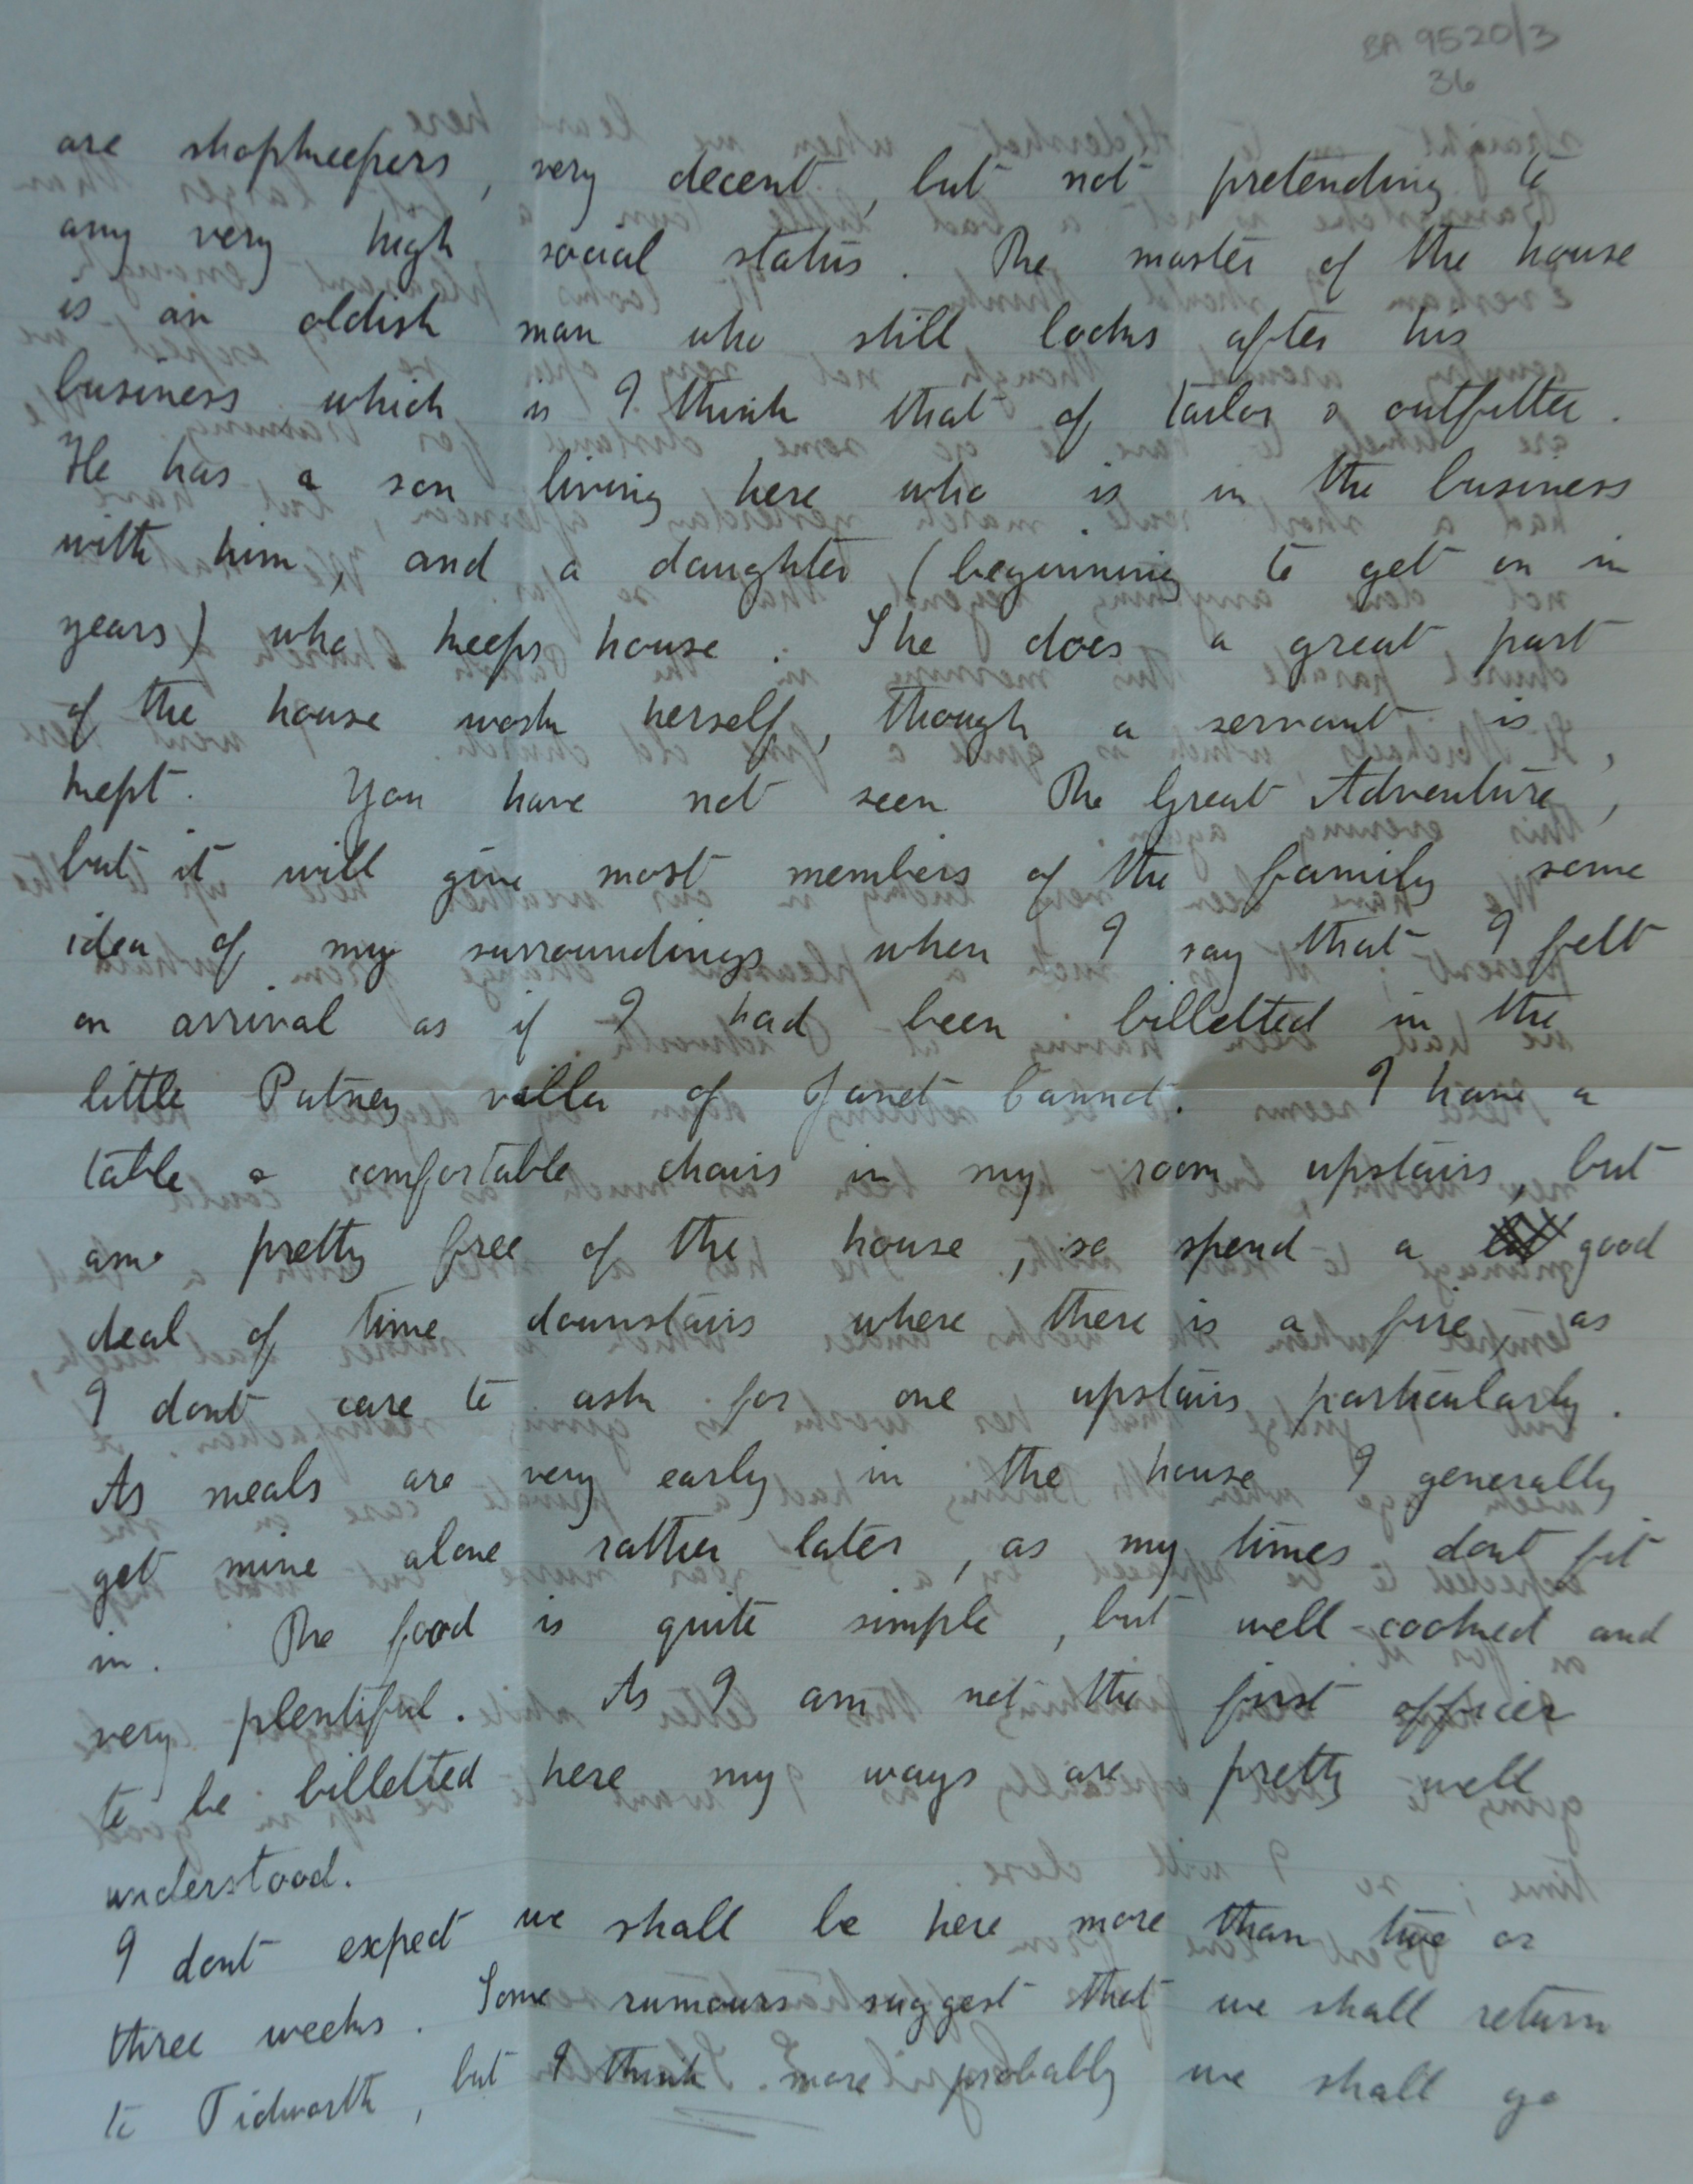 BA 9520/3
36
are shopkeepers, very decent, but not pretending to
any very high social status. The master of the house
is an oldish man who still looks after his
business which is I think that of tailor & outfitter.
He has a son living here who is in the business
with him, and a daughter (beginning to get on in
years) who keeps house. She does a great part
of the house work herself, though a servant is
kept. You have not seen The Great Adventure,
but it will give most members of the family some
idea of my surroundings when I say that I felt
on arrival as if I had been billetted in the
little Putney villa of Janet Cannot. I have a
table & comfortable chairs in my room upstairs, but
am pretty free of the house, so spend a good
deal of time downstairs where there is a fire, as
I dont care to ask for one upstairs particularly.
As meals are very early in the house I generally
get mine alone rather later, as my times dont fit
in. The food is quite simple, but well-cooked and
very plentiful. As I am not the first officer
to be billetted here my ways are pretty well
understood.
I dont expect we shall be here more than two or
three weeks. Some rumours suggest that we shall return
to Tidworth, but I think more probably we shall go